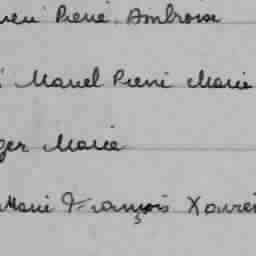 Pierre Ambroise
Marcel Pierre Marie
ger Marie
Marie François Xavier